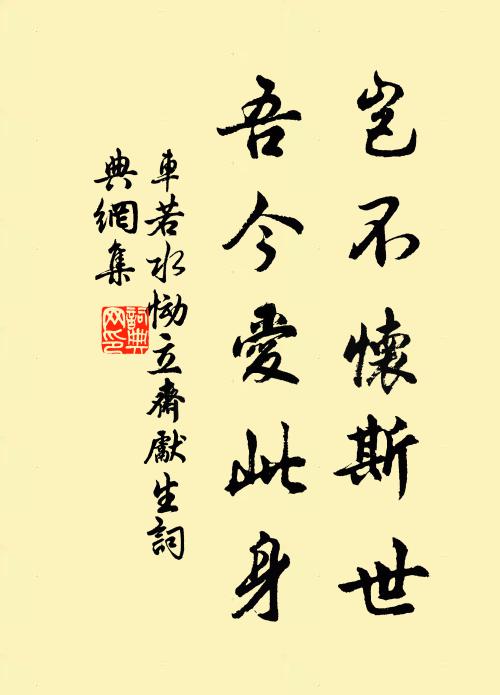 豈不懷斯世
吾今愛此身
車若水慟立齋獻生詞
典網集
詞典網印